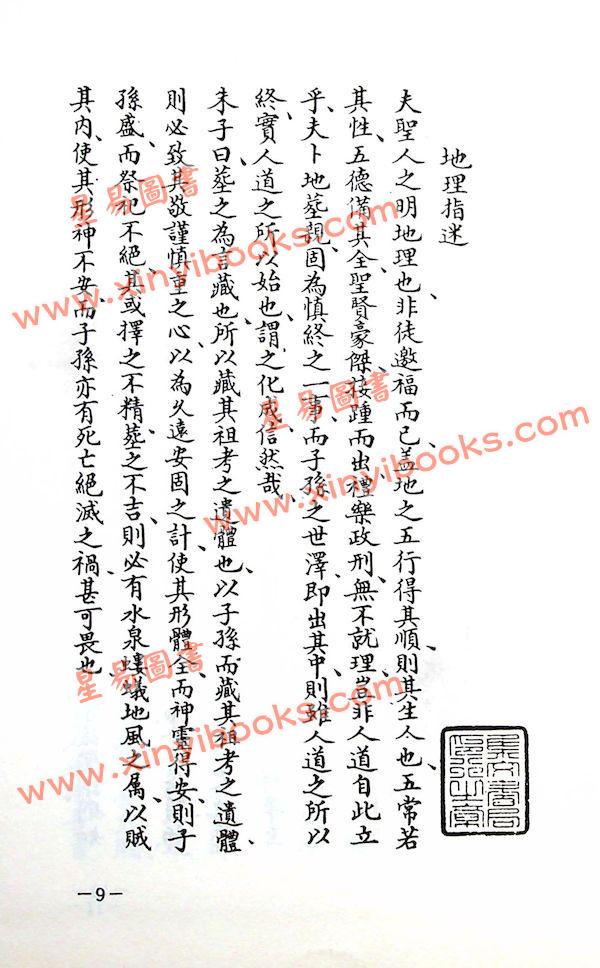 地理指迷
夫聖人之明地理也、非徒邀福而已、蓋地之五行得其順、則其生人也、五常若
其性、五德備其全、聖賢豪傑、接踵而出、禮樂政刑、無不就理、豈非人道自此立
乎、夫卜地葬親、固為慎終之一事、而子孫之世澤、即出其中、則雖人道之所以
終、實人道之所以始也、謂之化成、信然哉、
朱子曰葬之為言藏也、所以藏其祖考之遺體也、以子孫而藏其祖考之遺體、
則必致其敬謹慎重之心、以為久遠安固之計、使其形體全而神靈得安、則子
孫盛、而祭祀不絕、其或擇之不精、葬之不吉、則必有水泉螻蟻地風之屬、以賊
其內、使其形神不安、而子孫亦有死亡絕滅之禍、甚可畏也、
－9－
星易圖書
www.xinyibooks.com
星易圖書
www.xinyibooks.com
星易圖書
www.xinyibooks.com